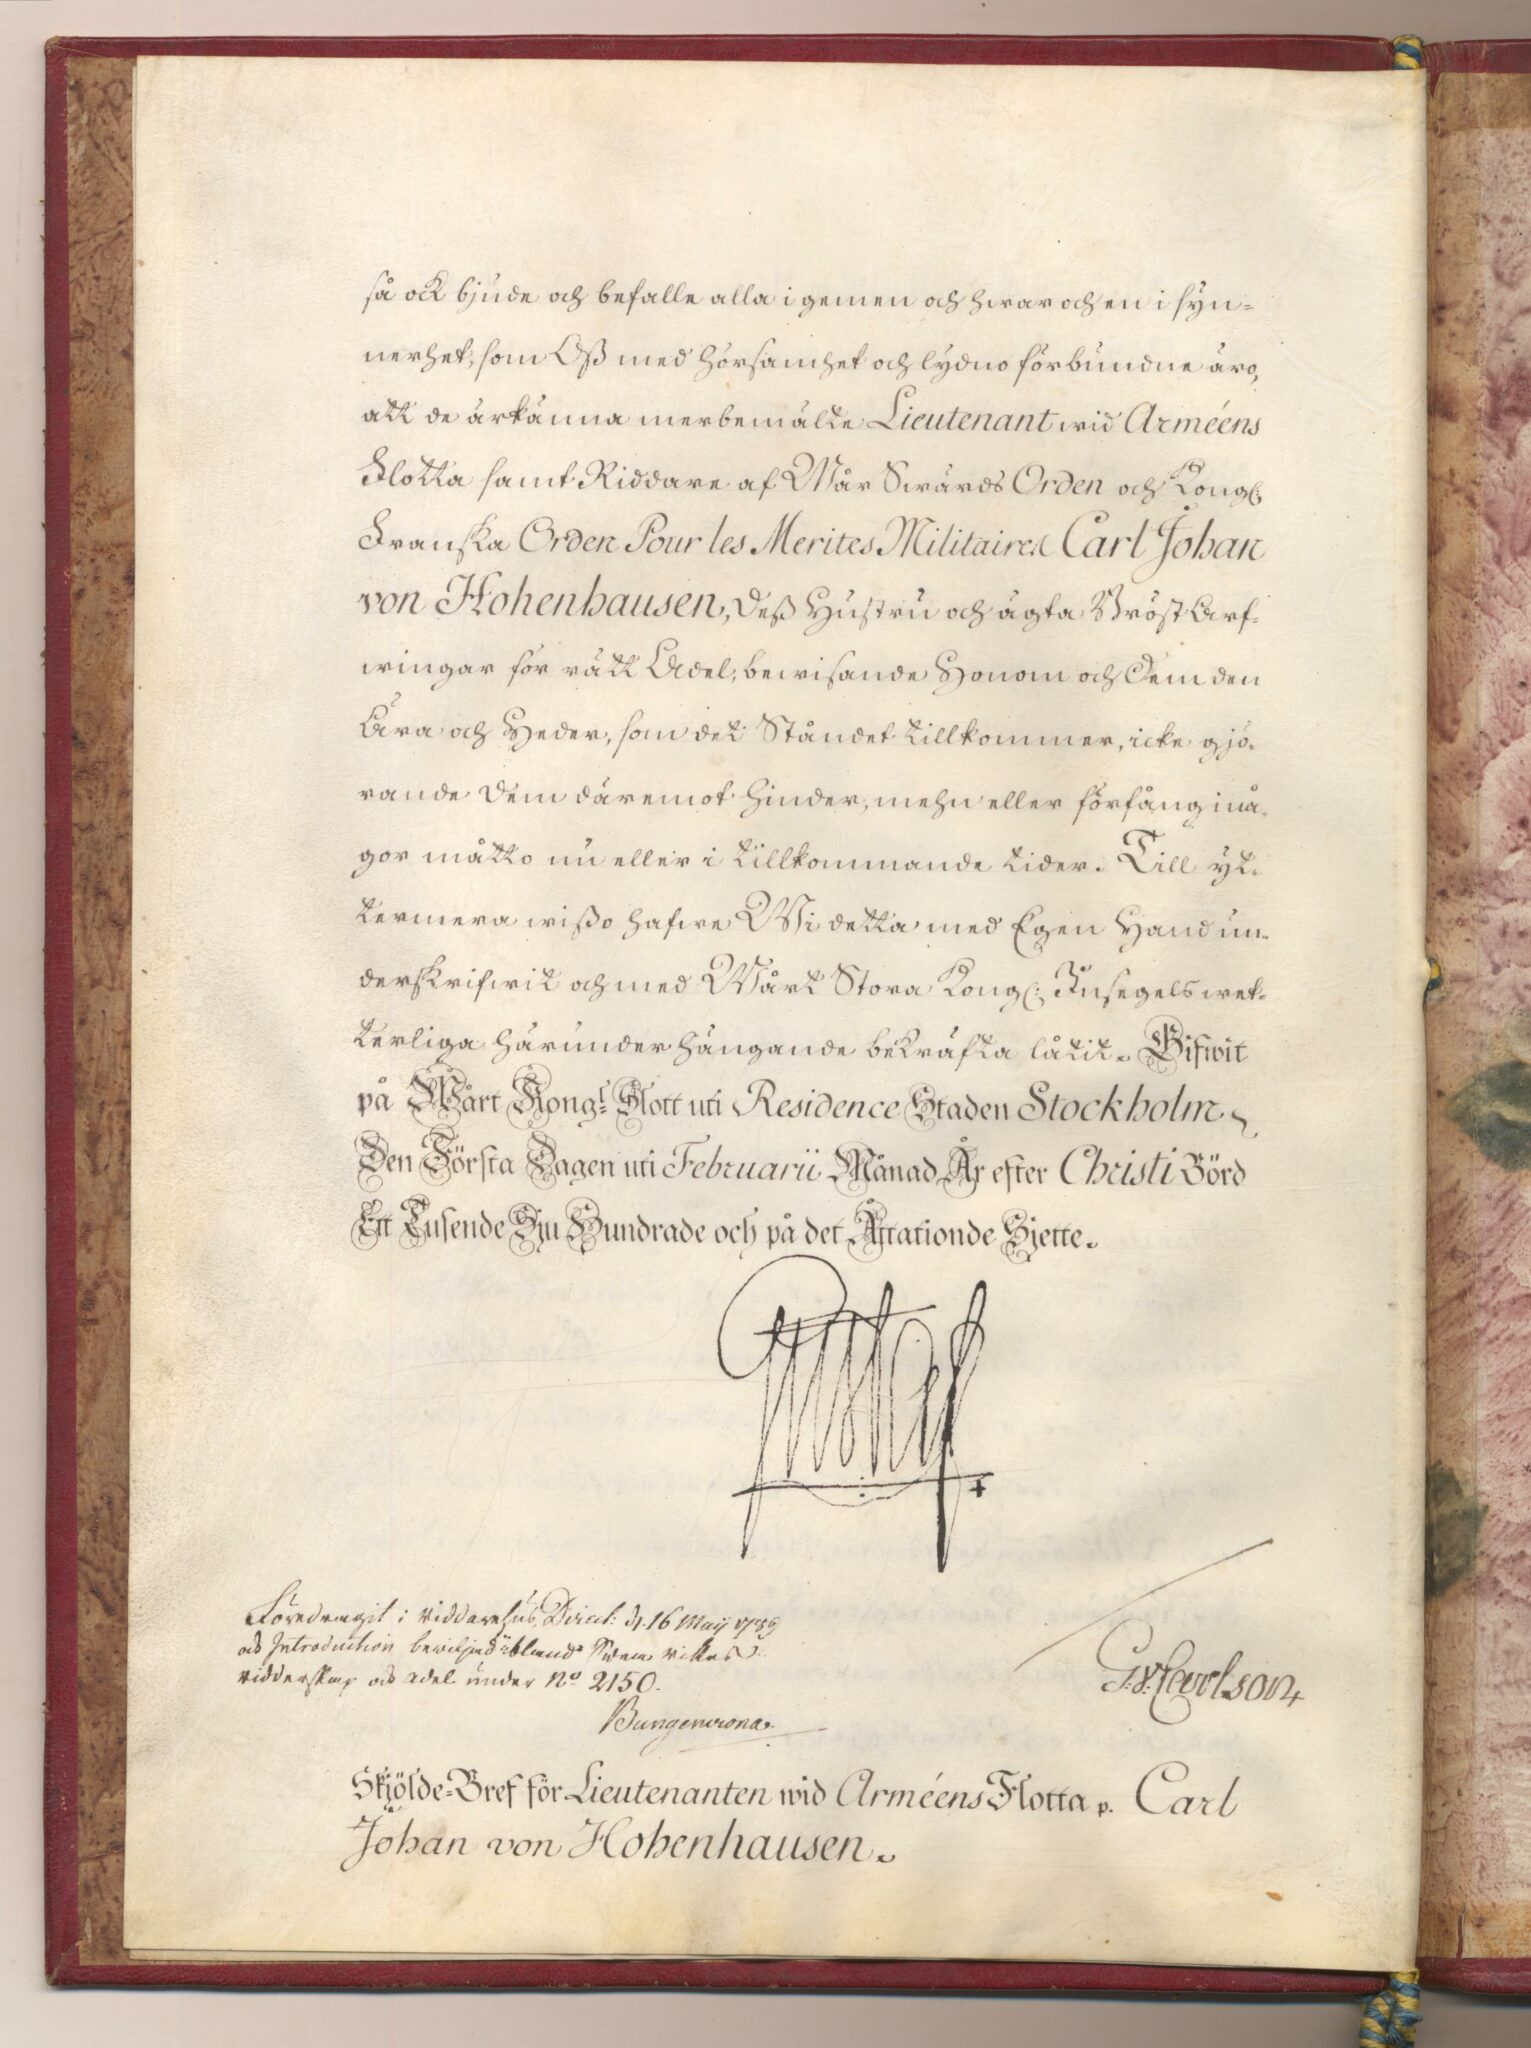 så ock bjude och befalle alla i gemen och hwar och en i syn=
nerhet, som Oß med hörsamhet och lydno förbundne äro,
att de ärkänna merbemälte Lieutenant wid Arméens
Flotta samt Riddare af Wår Swärds Orden och Kongl:
Franska Orden Pour les Merites Militaires Carl Johan
von Hohenhausen, Deß Hustru och ägta Bröst Arf=
wingar för rätt Adel, bewisande Honom och Dem den
Ära och Heder, som det Ståndet tillkommer, icke gjö=
rande Dem däremot hinder, mehn eller förfång i nå=
gor måtto nu eller i tillkommande tider. Till yt=
termera wißo hafwe Wi detta med Egen Hand un=
derskrifwit och med Wårt Stora Kongl: Insegel wet=
terliga härunder hängande bekräfta låtit. Gifwit
på Wårt Kongl: Slott uti Residence Staden Stockholm
Den Första Dagen uti Februarii Månad År efter Christi Börd
Ett Tusende Sju Hundrade och på det Åttationde Sjette.
Gustaf
Föredragit i Riddarhus Direct: d. 16 Maij
och Introduction bewiljad ibland Swea Rikes
Ridderskap och Adel under No 2150.
Carlson
Skjölde=Bref för Lieutenanten wid Arméens Flotta p. Carl
Johan von Hohenhausen.